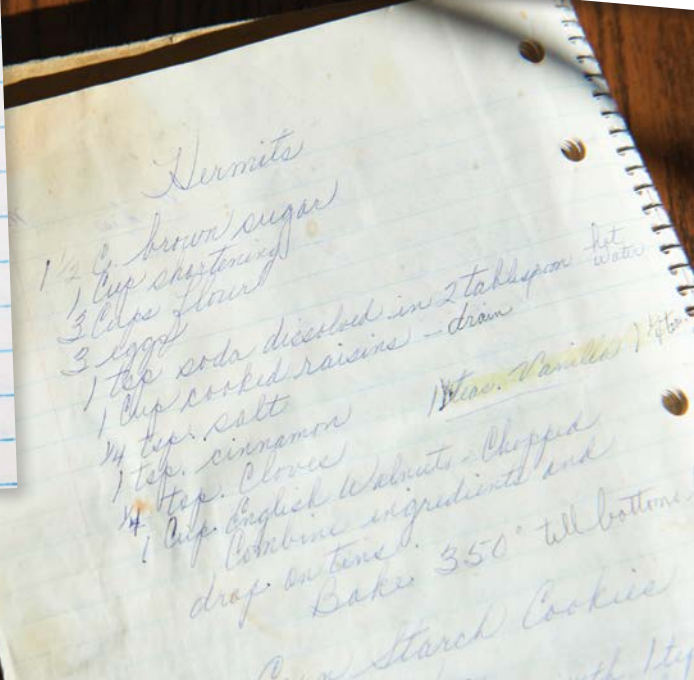 Hermits
1 1/2 C. brown sugar
1 Cup shortening
3 Cups flour
3 eggs
1 tsp soda dissolved in 2 tablspoon hot water
1 Cup cooked raisins - drain
1/4 tsp. salt
1 tsp. cinnamon
teas. Vanilla
1/4 tsp. Cloves
1 Cup English Walnuts - Chopped
Combine ingredients and
drop on tins.
Bake 350° till bottoms
Corn Starch Cookies